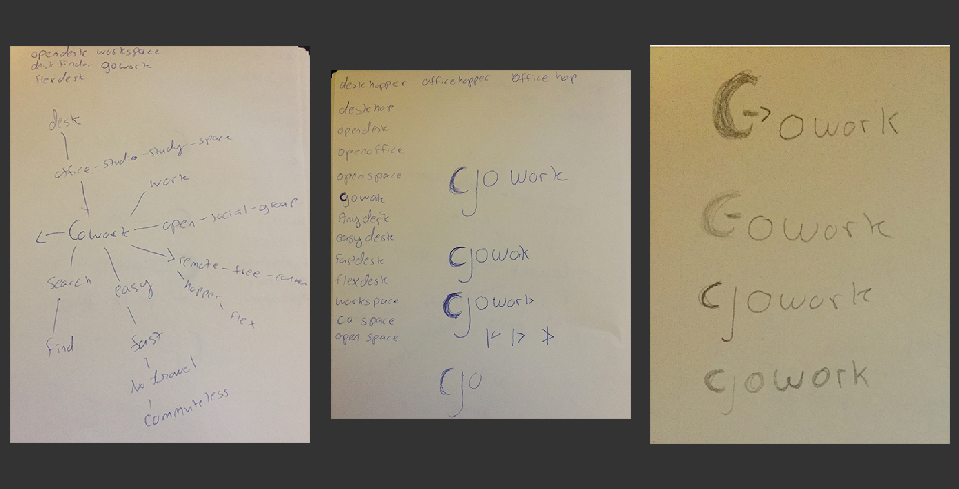 opendesk workspace
desk finder gowork
flexdesk
desk
office - studio - study - space
work
Cowork
open - social - group
remote - free -
search
easy
hopper
flex
find
fast
no travel
commuteless
deskhopper officehopper Office hop
deskhop
opendesk
openoffice
openspace
gowork
Anydesk
easydesk
Fastdesk
flexdesk
workspace
co space
open space
gowork
gowork
gowork
go
G->owork
Gowork
gowork
gowork